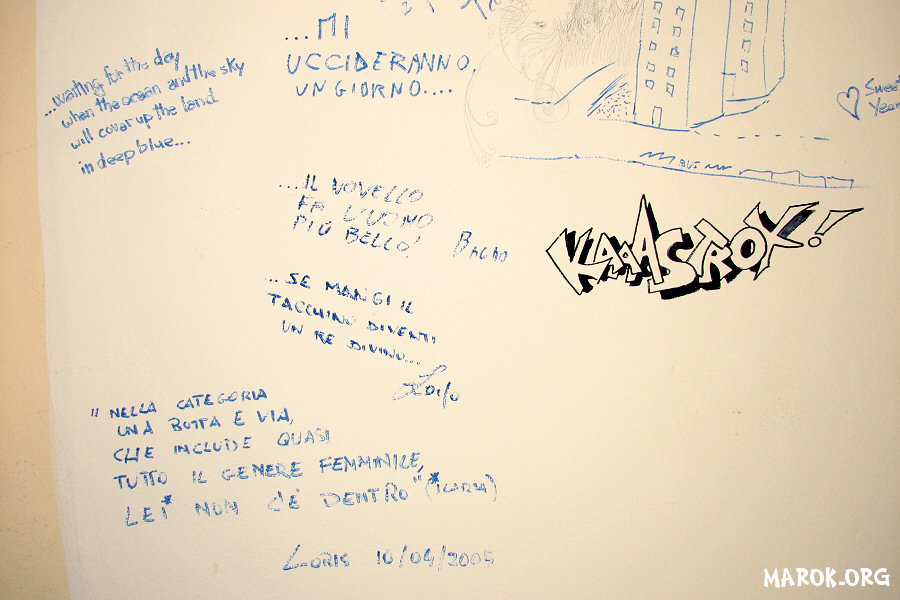 ...waiting for the day
when the ocean and the sky
will cover up the land
in deep blue...
...MI
UCCIDERANNO,
UN GIORNO....
Sweet
Year
BUS
...IL NOVELLO
FA L'UOMO
PIÙ BELLO!
KAAASTROX!!
...SE MANGI IL
TACCHINO DIVENTI
UN RE DIVINO...
"NELLA CATEGORIA
UNA BOTTA E VIA,
CHE INCLUDE QUASI
TUTTO IL GENERE FEMMINILE,
LEI* NON C'È DENTRO" (*ILARIA)
LORIS 10/04/2005
MAROK.ORG